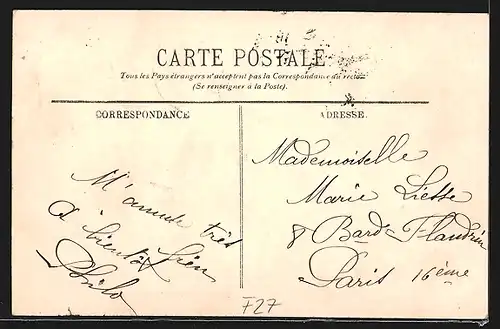 CARTE POSTALE
Tous les Pays étrangers n'acceptent pas la Correspondance au recto.
(Se renseigner à la Poste).
CORRESPONDANCE
M'amuse très
bien
A bientôt
ADRESSE.
Mademoiselle
Marie Liesse
8 Bard Flandrin
Paris 16ème
F27